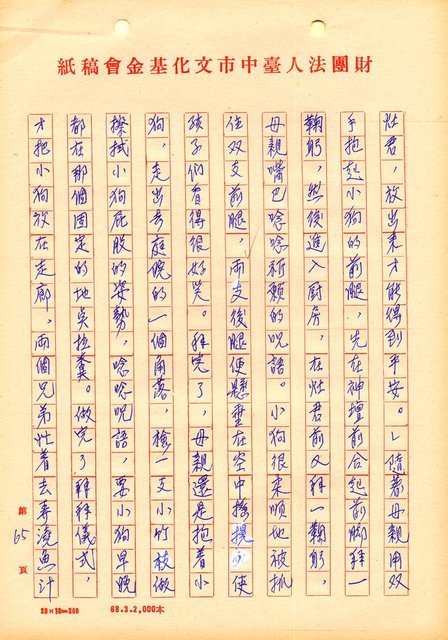 財團法人臺中市文化基金會稿紙
灶君,放出來才能得到平安。」隨著母親用双
手抱起小狗的前腿,先在神壇前合起前脚拜一
鞠躬,然後進入厨房,在灶君前又拜一鞠躬,
母親嘴巴唸唸祈願的呪語。小狗很柔順地被抓
住双支前腿,両支後腿便懸垂在空中搖提,使
孩子们看得很好笑。拜完了,母親還是抱着小
狗,走出去庭院的一個角落,撿一支小竹枝做
擦拭小狗屁股的姿勢,唸唸呪語,要小狗早晚
都在那個固定的地点拉糞。做完了拜拜儀式,
才把小狗放在走廊,両個兄弟忙着去弄澆魚汁
第65頁
20×10=200
68.3.2,000本